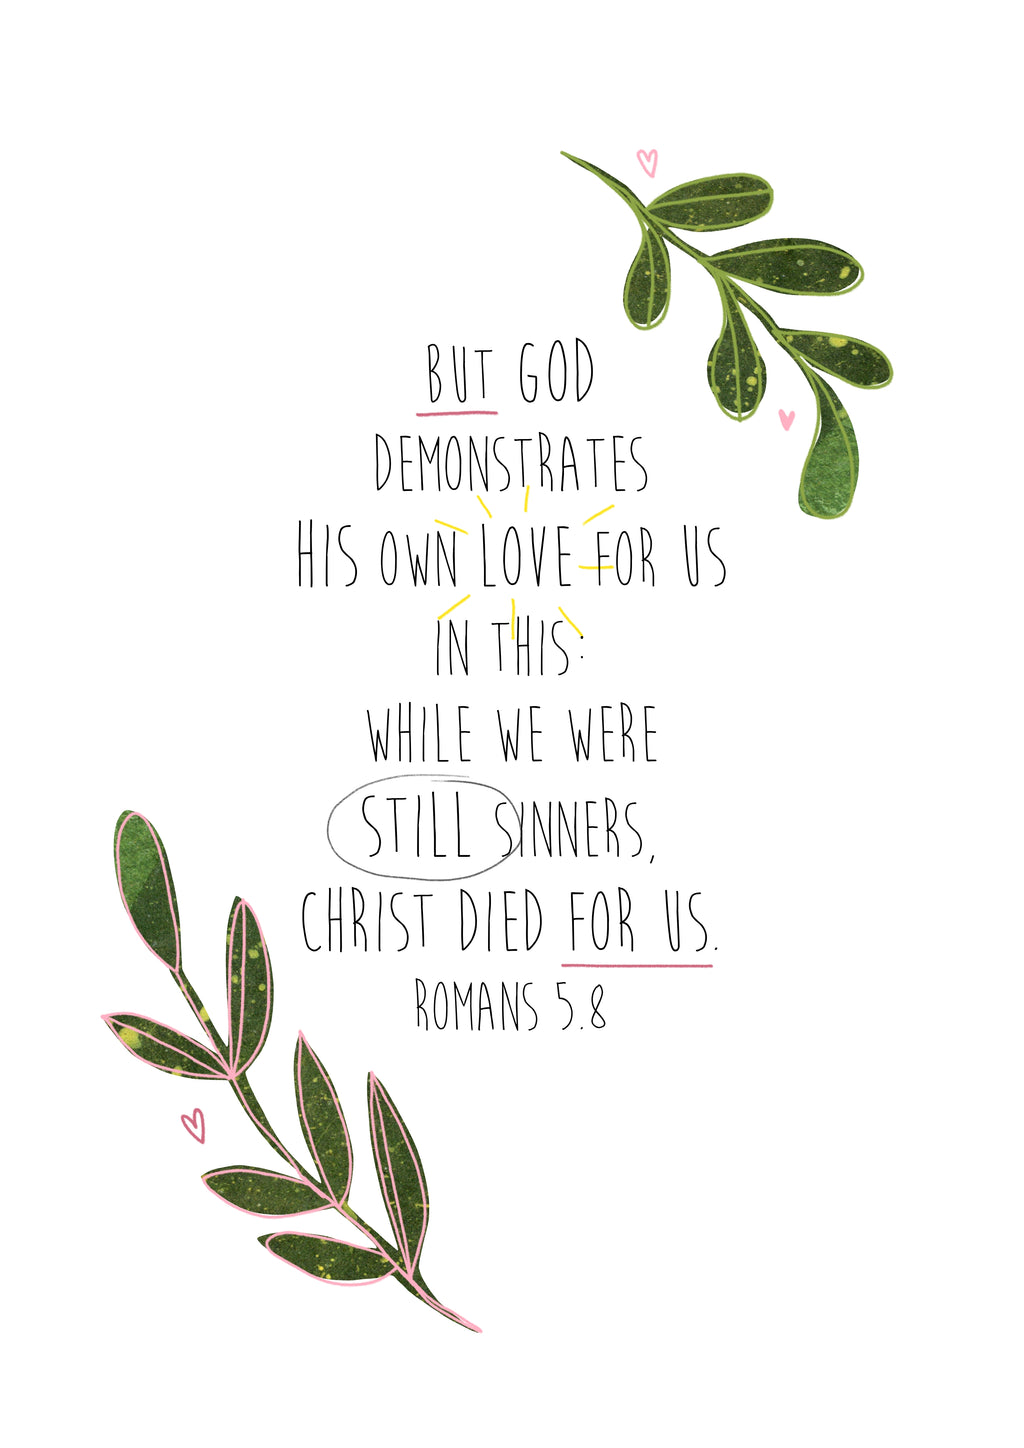 BUT GOD
DEMONSTRATES
HIS OWN LOVE FOR US
IN THIS:
WHILE WE WERE
STILL SINNERS,
CHRIST DIED FOR US.
ROMANS 5.8